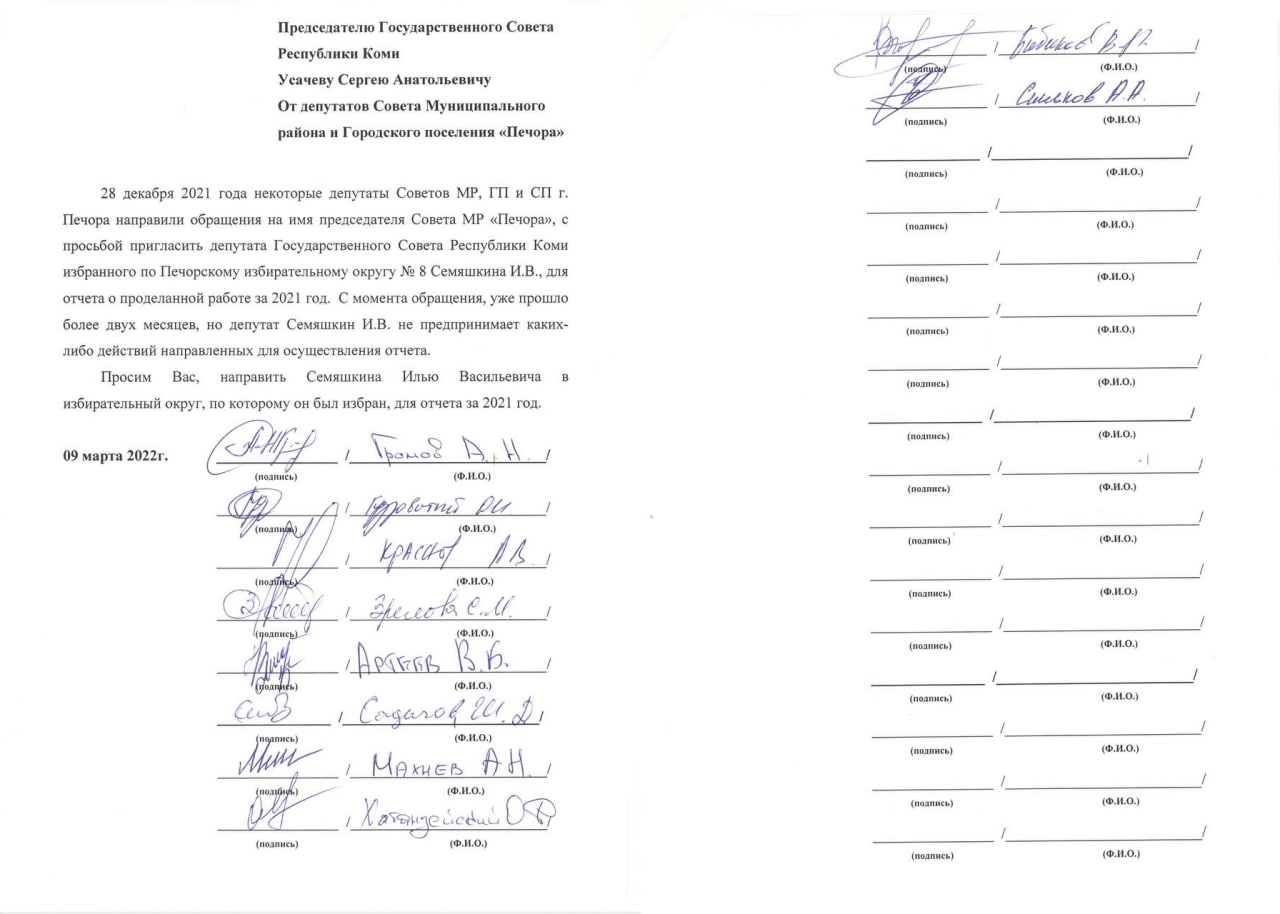 Председателю Государственного Совета
Республики Коми
Усачеву Сергею Анатольевичу
От депутатов Совета Муниципального
района и Городского поселения «Печора»
28 декабря 2021 года некоторые депутаты Советов МР, ГП и СП г.
Печора направили обращения на имя председателя Совета МР «Печора», с
просьбой пригласить депутата Государственного Совета Республики Коми
избранного по Печорскому избирательному округу № 8 Семяшкина И.В., для
отчета о проделанной работе за 2021 год. С момента обращения, уже прошло
более двух месяцев, но депутат Семяшкин И.В. не предпринимает каких-
либо действий направленных для осуществления отчета.
Просим Вас, направить Семяшкина Илью Васильевича в
избирательный округ, по которому он был избран, для отчета за 2021 год.
09 марта 2022г. / Громов А.Н. /
(подпись) (Ф.И.О.)
/ /
(подпись) (Ф.И.О.)
/ Краснов А В. /
(подпись) (Ф.И.О.)
/ Зрелова С.М. /
(подпись) (Ф.И.О.)
/ Артеев В.Б. /
(подпись) (Ф.И.О.)
/ Садыгов Ш.Д /
(подпись) (Ф.И.О.)
/ Махнев А Н. /
(подпись) (Ф.И.О.)
/ Хатанзейский /
(подпись) (Ф.И.О.)
/ Бибиков /
(подпись) (Ф.И.О.)
/ А.А. /
(подпись) (Ф.И.О.)
/ /
(подпись) (Ф.И.О.)
/ /
(подпись) (Ф.И.О.)
/ /
(подпись) (Ф.И.О.)
/ /
(подпись) (Ф.И.О.)
/ /
(подпись) (Ф.И.О.)
/ /
(подпись) (Ф.И.О.)
/ /
(подпись) (Ф.И.О.)
/ /
(подпись) (Ф.И.О.)
/ /
(подпись) (Ф.И.О.)
/ /
(подпись) (Ф.И.О.)
/ /
(подпись) (Ф.И.О.)
/ /
(подпись) (Ф.И.О.)
/ /
(подпись) (Ф.И.О.)
/ /
(подпись) (Ф.И.О.)